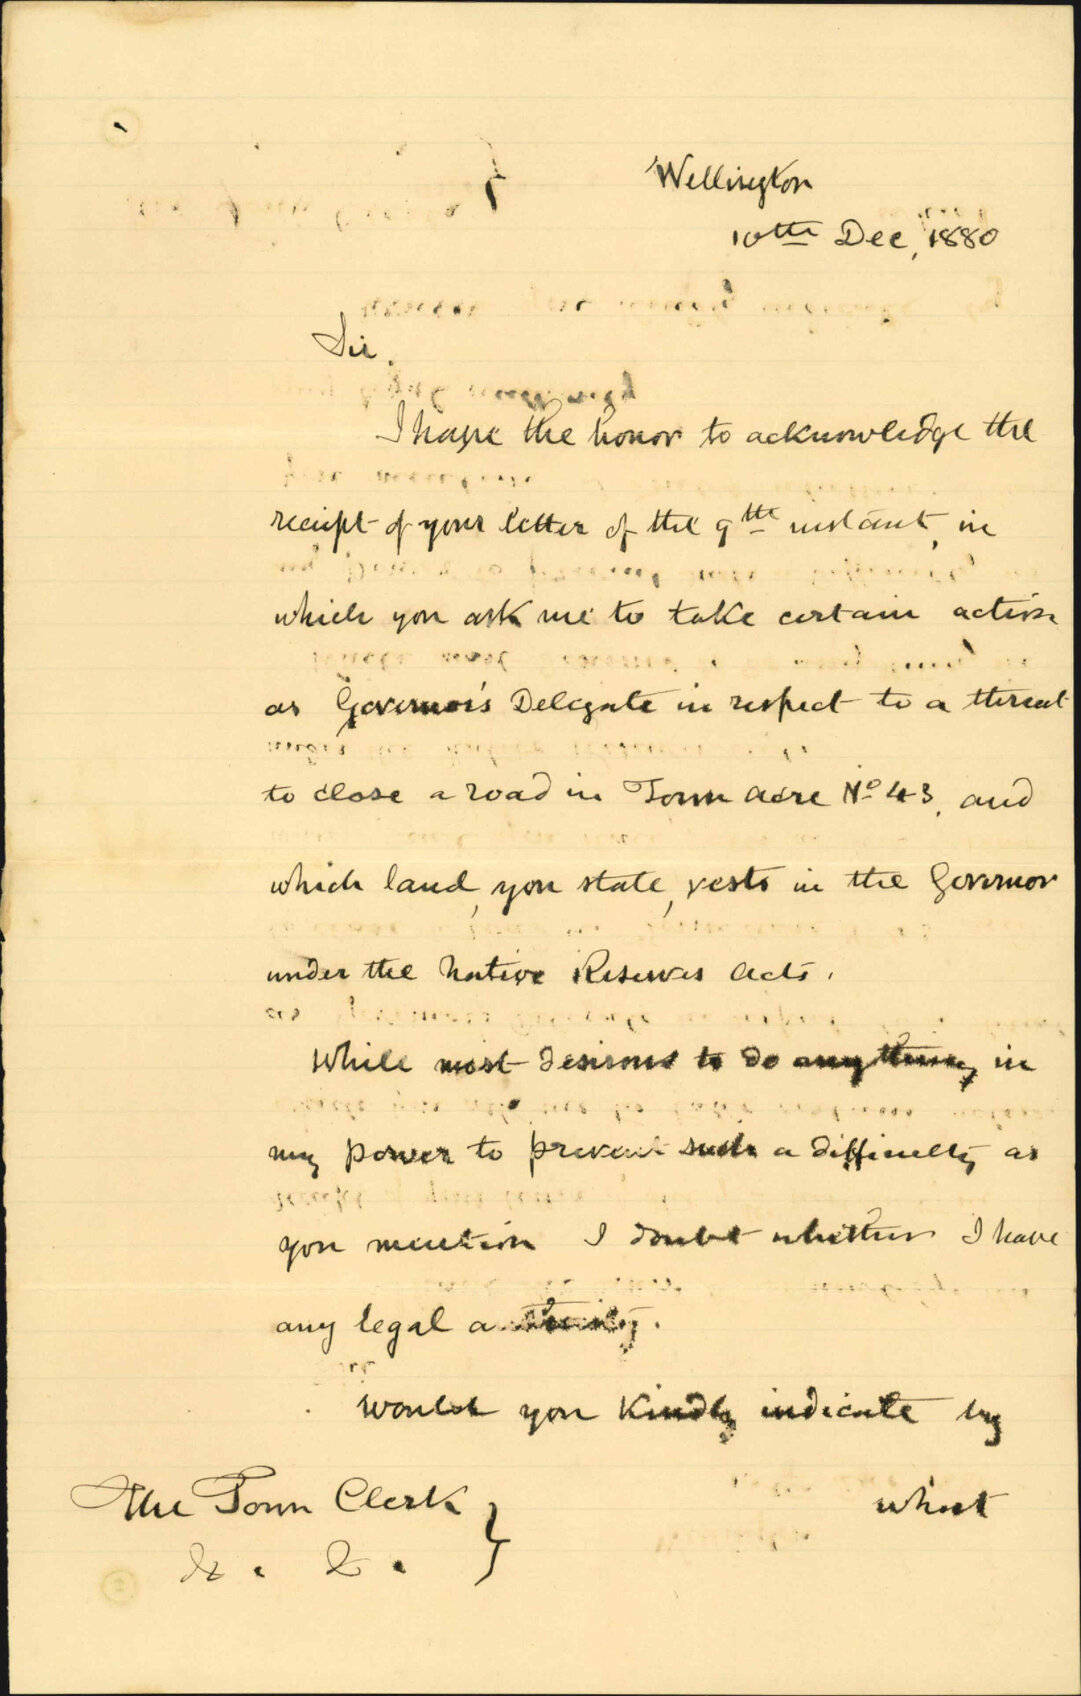 Wellington
10th Dec, 1880
Sir.
I have the honor to acknowledge the
receipt of your letter of the 9th instant, in
which you ask me to take certain action
as Governor's Delegate in respect to a threat
to close a road in Town Acre No 43, and
which land, you state, vests in the Governor
under the Native Reserves Acts.
While most desirous to do anything in
my power to prevent such a difficulty as
you mention I doubt whether I have
any legal authority.
Would you kindly indicate by
what
The Town Clerk
&. &.